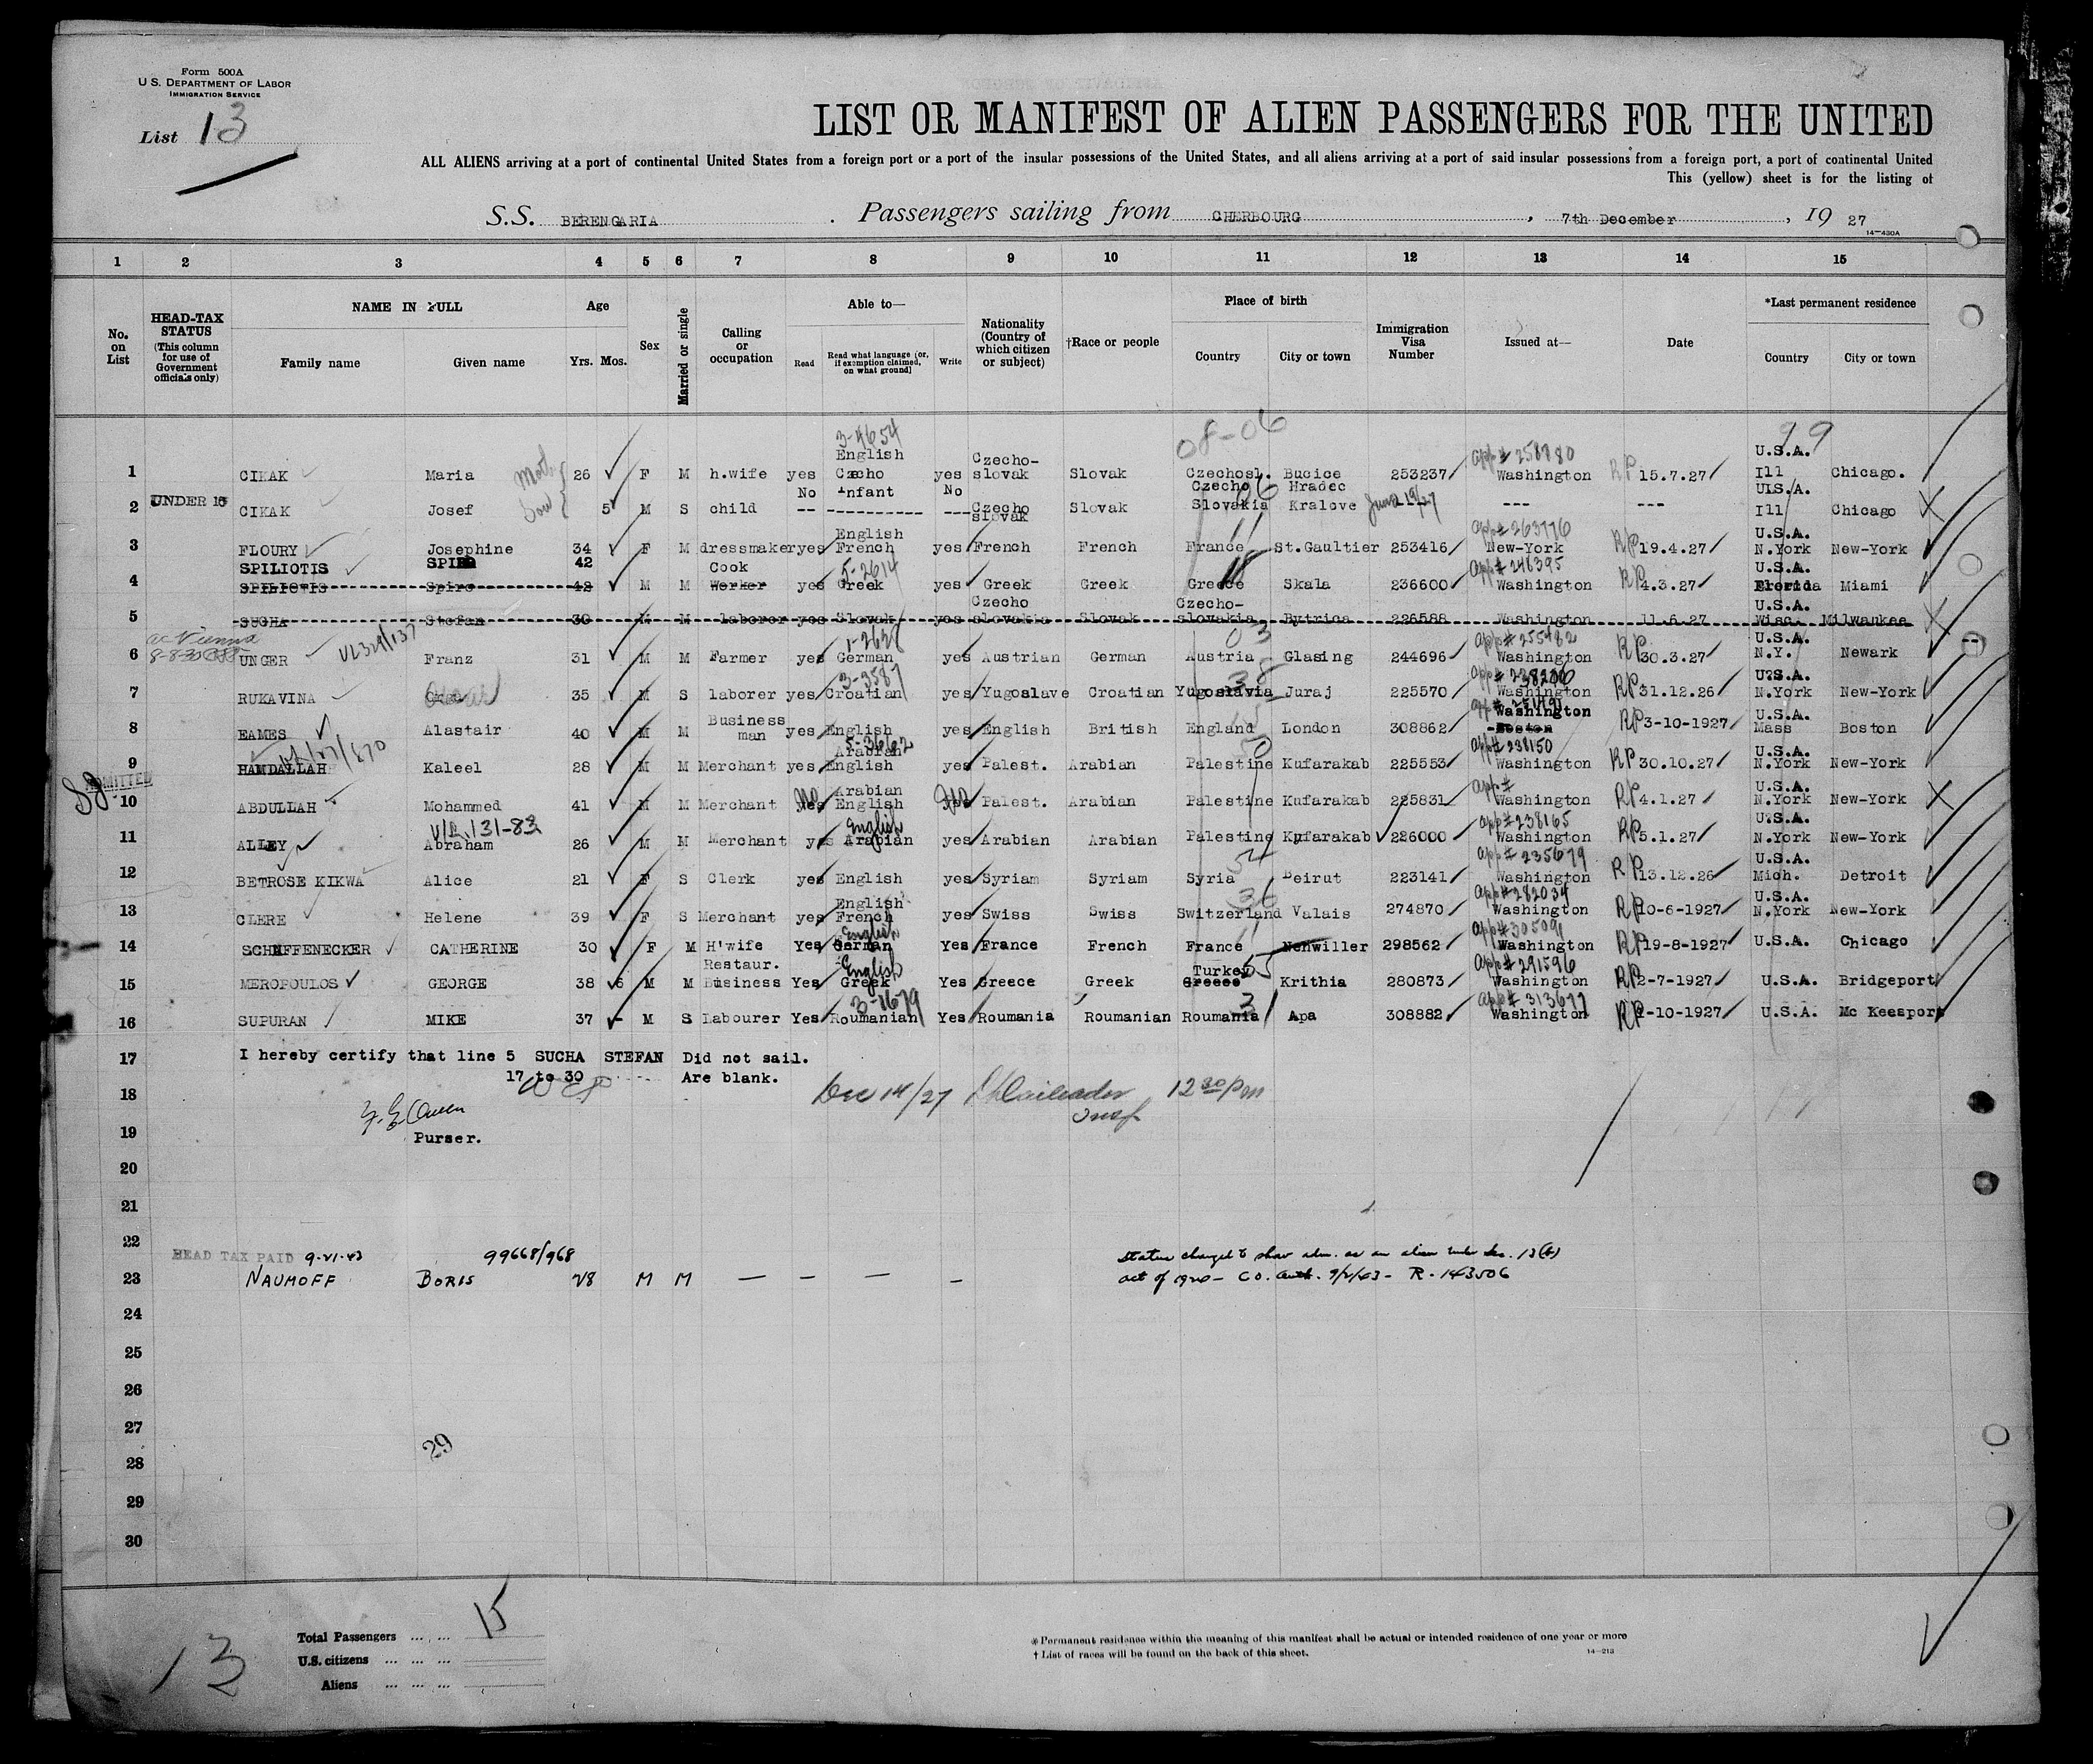 Form 500A
U.S. DEPARTMENT OF LABOR
IMMIGRATION SERVICE
List 13
LIST OR MANIFEST OF ALIEN PASSENGERS FOR THE UNITED
ALL ALIENS arriving at a port of continental United States from a foreign port or a port of the insular possessions of the United States, and all aliens arriving at a port of said insular possessions from a foreign port, a port of continental United
This (yellow) sheet is for the listing of
S.S. BERENGARIA . Passengers sailing from CHERBOURG , 7th December , 19 27
14—430A
1 2 3 4 5 6 7 8 9 10 11 12 13 14 15
No. on List
HEAD-TAX STATUS (This column for use of Government officials only)
NAME IN FULL
Family name Given name
Age
Yrs. Mos.
Sex
Married or single
Calling or occupation
Able to—
Read
Read what language [or, if exemption claimed, on what ground]
Write
Nationality (Country of which citizen or subject)
†Race or people
Place of birth
Country City or town
Immigration Visa Number
Issued at—
Date
*Last permanent residence
Country City or town
08-06 99
3-4654 App# 258780
English Czecho- U.S.A.
1 CIKAK Maria 26 F M h.wife yes Czecho yes slovak Slovak Czechosl. Bucice 253237 Washington RP 15.7.27 Ill Chicago.
No Infant No Czecho Hradec U.S.A.
2 UNDER 16 CIKAK Josef 5 M S child -- ---------- --- Czecho slovak Slovak Slovakia Kralove June 19/27 --- --- Ill Chicago
English App# 263776 U.S.A.
3 FLOURY Josephine 34 F M dressmaker yes French yes French French France St.Gaultier 253416 New-York RP 19.4.27 N.York New-York
SPILIOTIS SPIRO 42 Cook 5-2614 App# 246395 U.S.A.
4 SPILIOTIS Spiro 42 M M Worker yes Greek yes Greek Greek Greece Skala 236600 Washington RP 4.3.27 Florida Miami
Czecho Czecho- U.S.A.
5 SUCHA Stefan 30 M M laborer yes Slovak yes slovakia Slovak slovakia Bytrica 226588 Washington 11.6.27 Wisc. Milwaukee
Vienna 1-2626 03 App# 255482 U.S.A.
6 UNGER Franz 31 M M Farmer yes German yes Austrian German Austria Glasing 244696 Washington RP 30.3.27 N.Y. Newark
3-3587 38 App# 238206 U.S.A.
7 RUKAVINA 35 M S laborer yes Croatian yes Yugoslave Croatian Yugoslavia Juraj 225570 Washington RP 31.12.26 N.York New-York
Business Washington U.S.A.
8 EAMES Alastair 40 M M man yes English yes English British England London 308862 Boston RP 3-10-1927 Mass Boston
5-3662 Arabian App# 238150 U.S.A.
9 HAMDALLAH Kaleel 28 M M Merchant yes English yes Palest. Arabian Palestine Kufarakab 225553 Washington RP 30.10.27 N.York New-York
ADMITTED
Arabian App# U.S.A.
10 ABDULLAH Mohammed 41 M M Merchant No yes English yes Palest. Arabian Palestine Kufarakab 225831 Washington RP 4.1.27 N.York New-York
V/L 131-83 English App# 238165 U.S.A.
11 ALLEY Abraham 26 M M Merchant yes Arabian yes Arabian Arabian Palestine Kufarakab 226000 Washington RP 5.1.27 N.York New-York
54 App# 235679 U.S.A.
12 BETROSE KIKWA Alice 21 F S Clerk yes English yes Syriam Syriam Syria Beirut 223141 Washington RP 13.12.26 Mich. Detroit
English 36 App# 282034 U.S.A.
13 CLERE Helene 39 F S Merchant yes French yes Swiss Swiss Switzerland Valais 274870 Washington RP 10-6-1927 N.York New-York
English App# 305091
14 SCHAFFENECKER CATHERINE 30 F M H'wife Yes German Yes France French France Nenwiller 298562 Washington RP 19-8-1927 U.S.A. Chicago
Restaur. English Turkey 55 App# 291596
15 MEROPOULOS GEORGE 38 6 M M Business Yes Greek Yes Greece Greek Greece Krithia 280873 Washington RP 2-7-1927 U.S.A. Bridgeport
3-1679 31 App# 313677
16 SUPURAN MIKE 37 - M S Labourer Yes Roumanian Yes Roumania Roumanian Roumania Apa 308882 Washington RP -10-1927 U.S.A. Mc Keesport
17 I hereby certify that line 5 SUCHA STEFAN Did not sail.
17 to 30 Are blank.
18 Dec 14/27 Insp 12 30 pm
19 Purser.
20
21
22
HEAD TAX PAID 9-21-43 99668/968 Status changed to show adm. as an alien under Sec. 13(b)
23 NAUMOFF BORIS 28 M M — — — — act of 1924 - CO. auth. 9/2/43 - R-143506
24
25
26
27
29
28
29
30
13
Total Passengers ... ... 15
U.S. citizens ... ... ...
Aliens ... ... ...
* Permanent residence within the meaning of this manifest shall be actual or intended residence of one year or more
† List of races will be found on the back of this sheet.
14—213